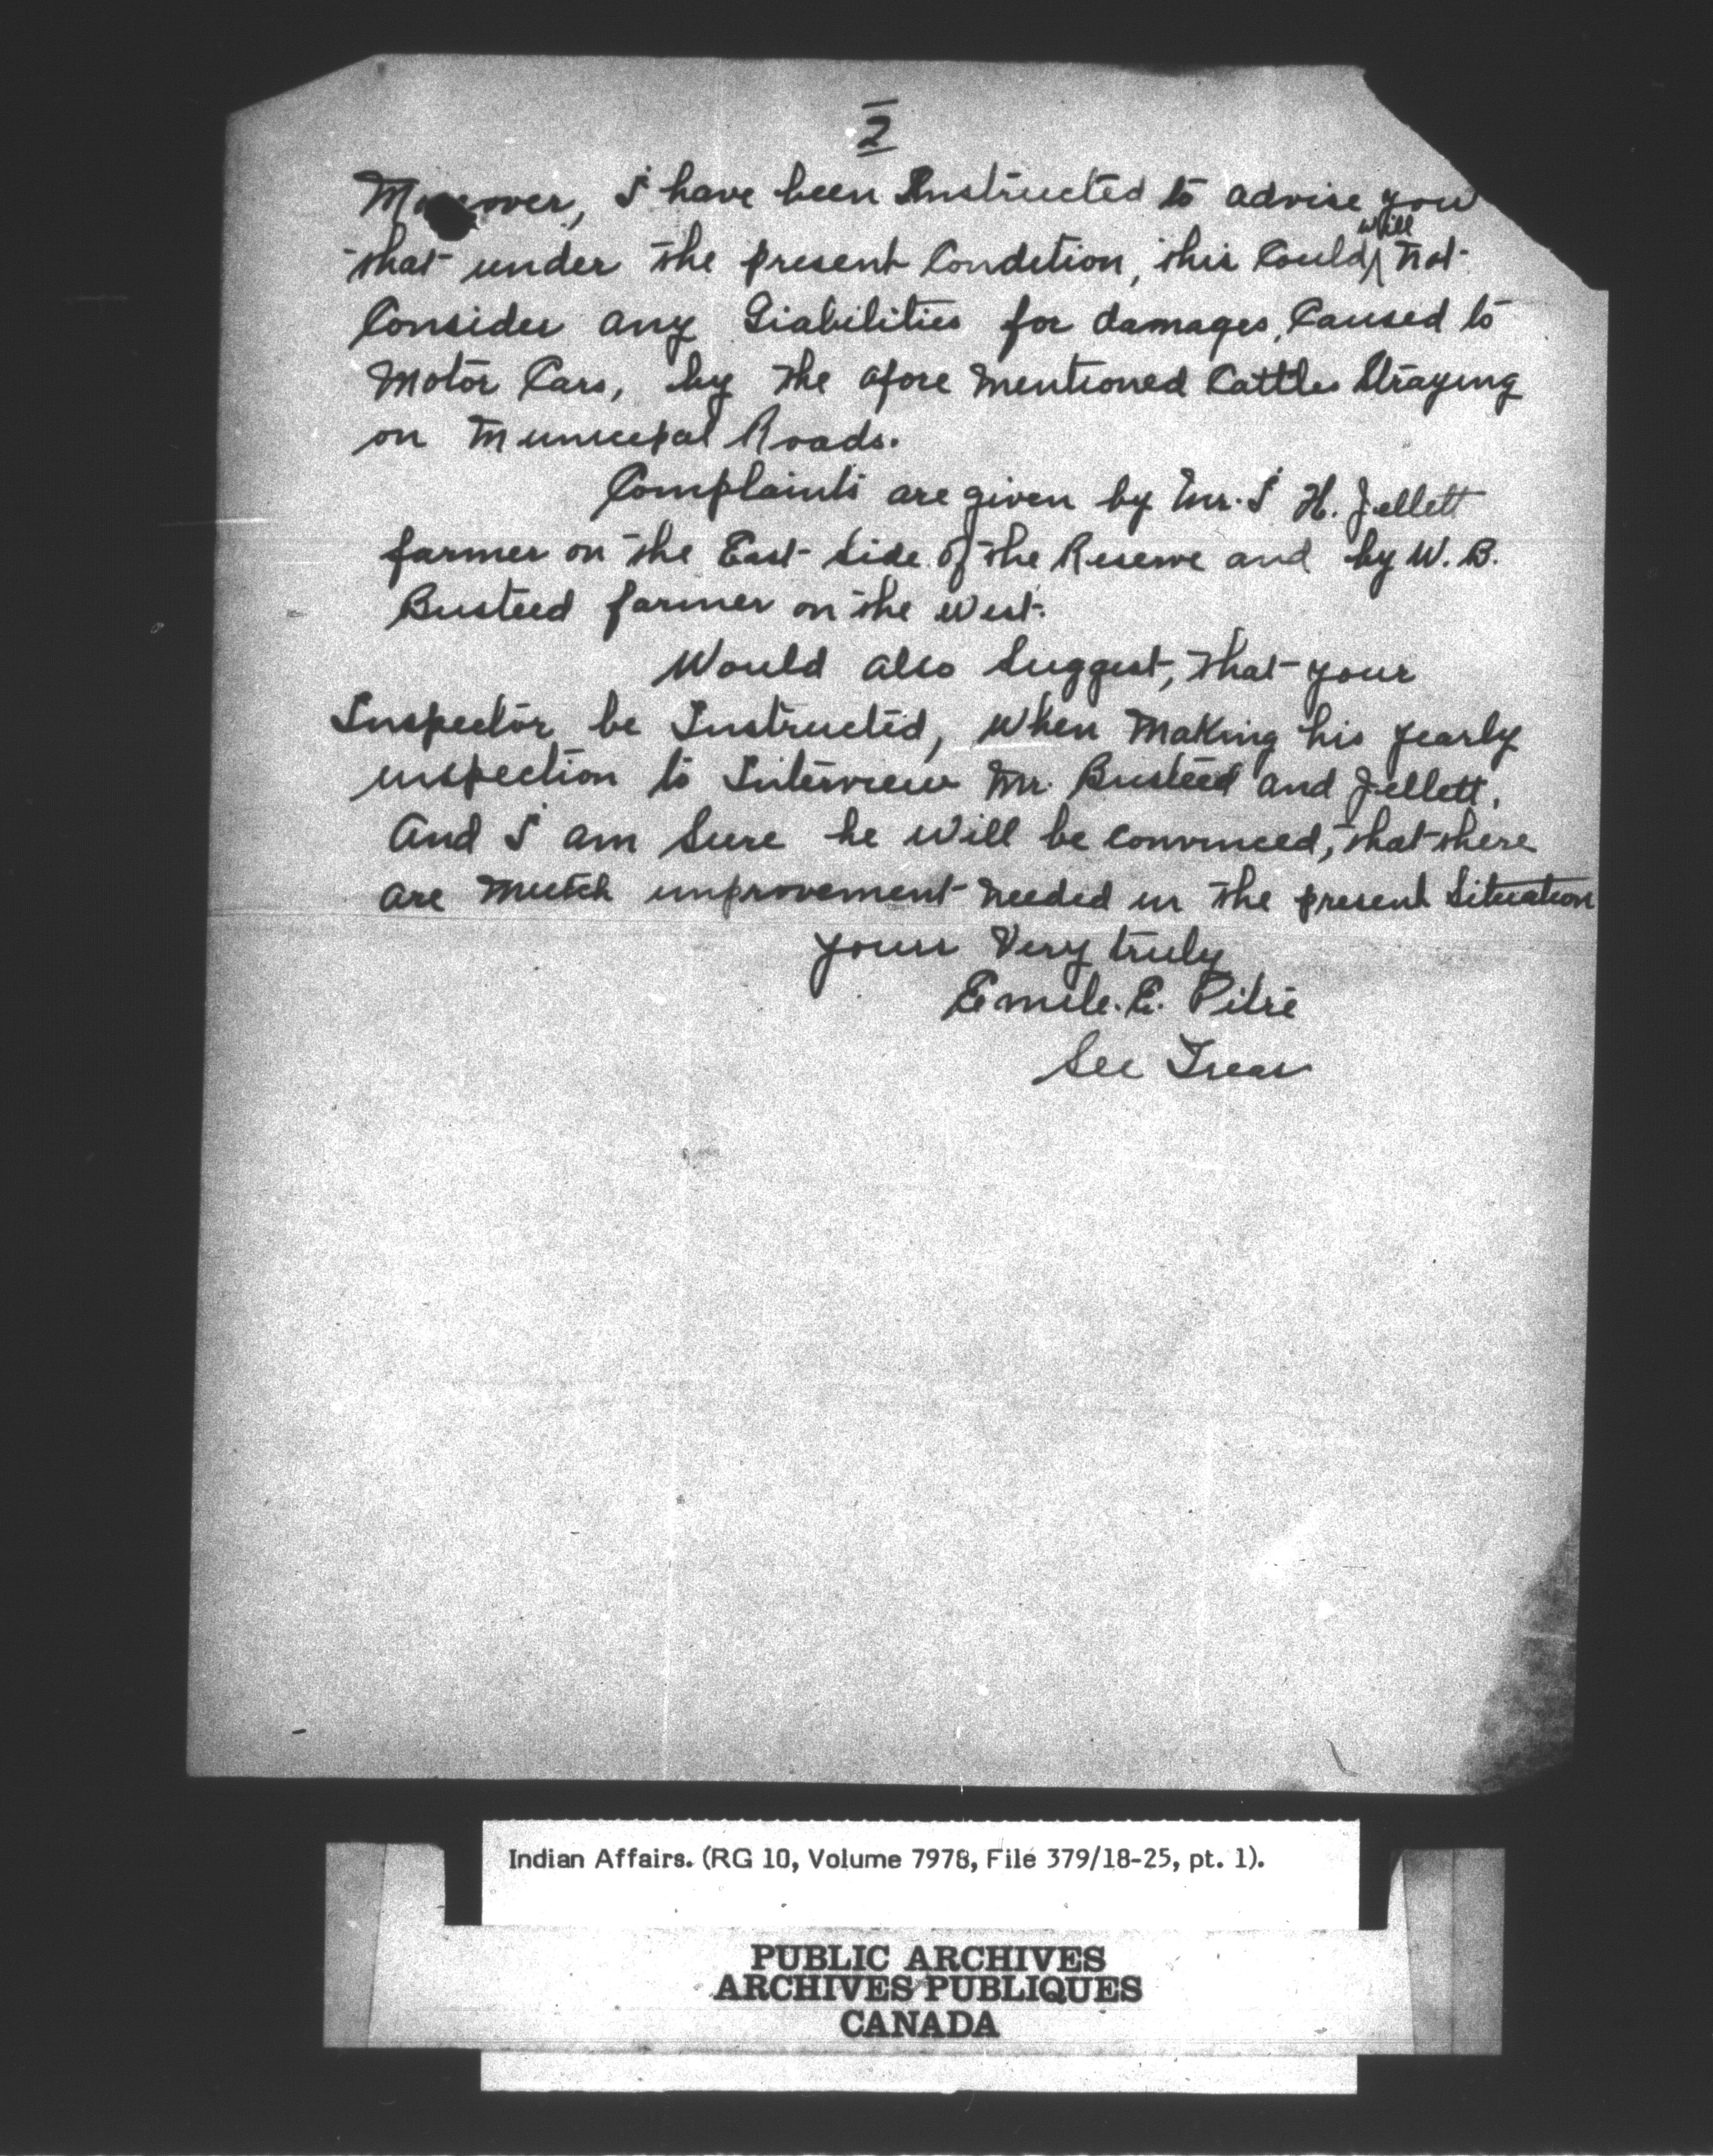 2
Moreover, I have been Instructed to advise you
that under the present Condition, this Could will not
Consider any Liabilities for damages, Caused to
Motor Cars, by the afore mentioned Cattles Straying
on Municipal Roads.
Complaints are given by Mr. I H. Jellett
farmer on the East Side of the Reserve and by W. B.
Busteed farmer on the West.
Would also Suggest, that your
Inspector be Instructed, when Making his yearly
inspection to Interview Mr. Busteed and Jellett.
And I am Sure he will be convinced, that there
are Mutch improvement needed in the present Situation
yours Very truly
Emile. E. Pitre
Sec Treas
Indian Affairs. (RG 10, Volume 7978, File 379/18-25, pt. 1).
PUBLIC ARCHIVES
ARCHIVES PUBLIQUES
CANADA